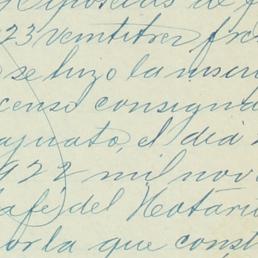 Hipotecas de f
23 veintitres fre
se hizo la inscri
censo consigna
ajuato, el dia
922 mil nov
afe) del Notario
or la que const